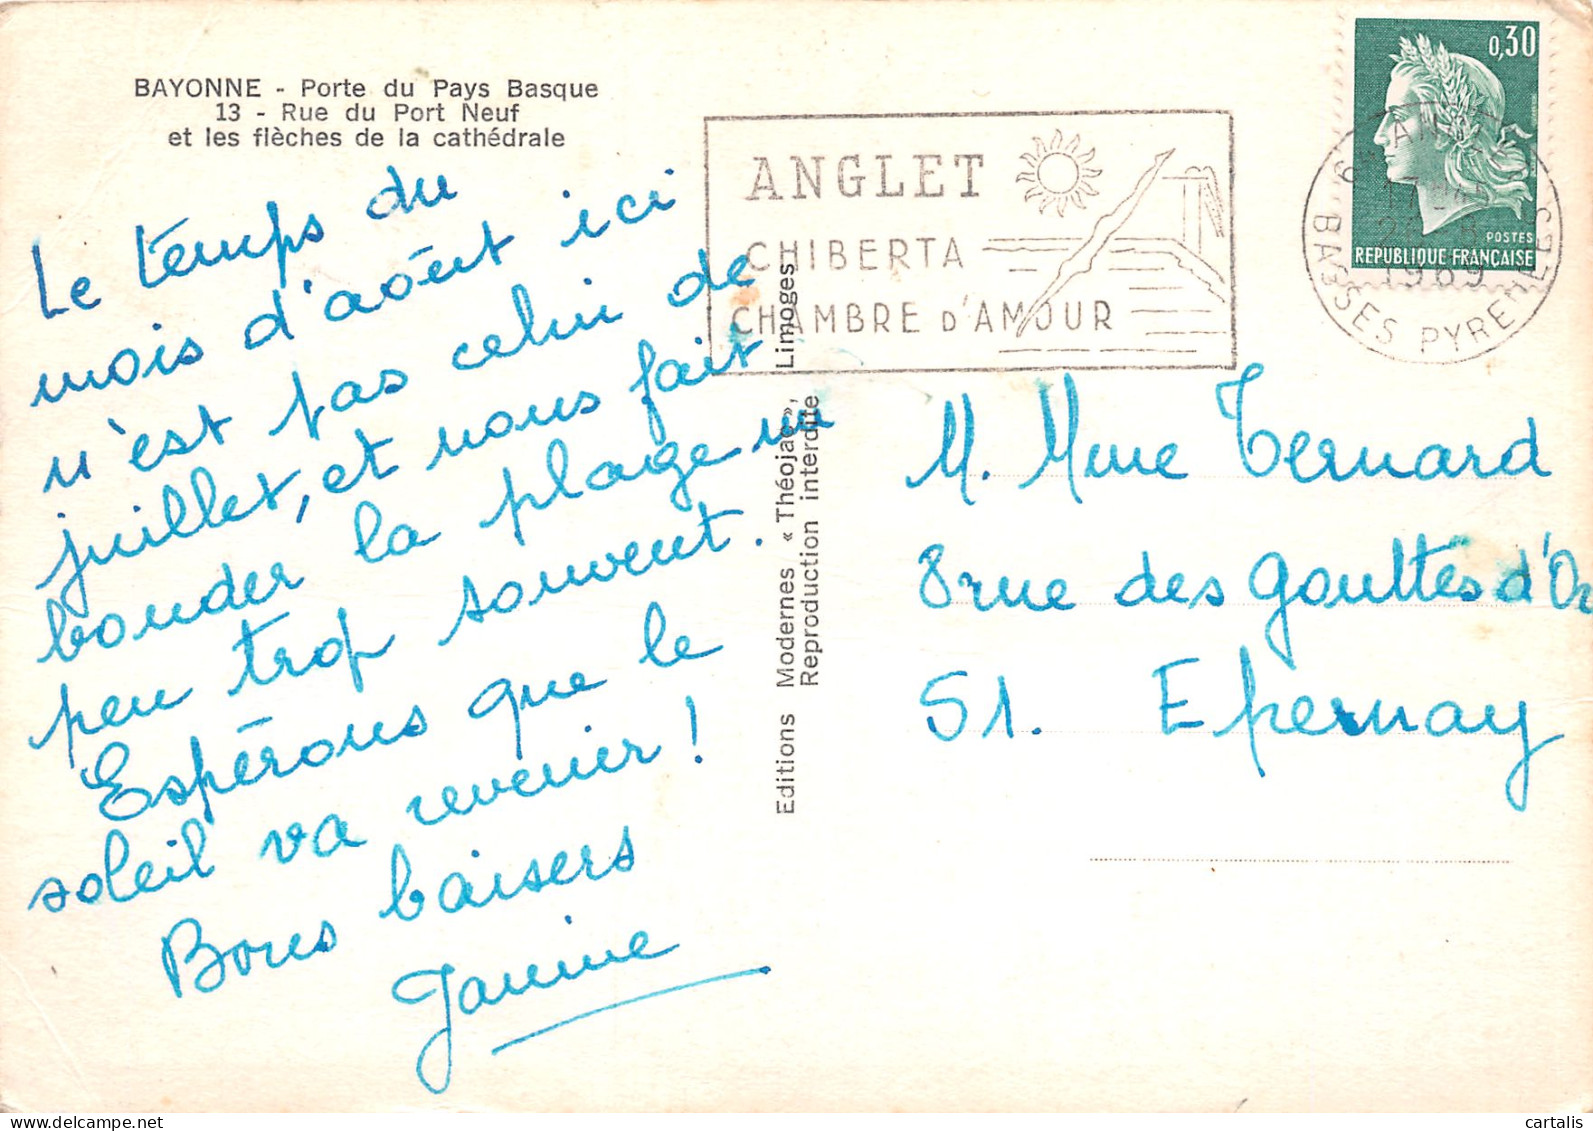 BAYONNE - Porte du Pays Basque
13 - Rue du Port Neuf
et les flèches de la cathédrale
Le temps du
mois d'août ici
n'est pas celui de
juillet, et nous fait
bouder la plage un
peu trop souvent.
Espérons que le
soleil va revenir !
Bons baisers
Janine
Editions Modernes « Théojac », Limoges
Reproduction interdite
ANGLET
CHIBERTA
CHAMBRE D'AMOUR
0,30
POSTES
REPUBLIQUE FRANÇAISE
1969
BASSES PYRENEES
M. Mme Ternard
8 rue des Gouttes d'Or
51. Epernay
cartalis